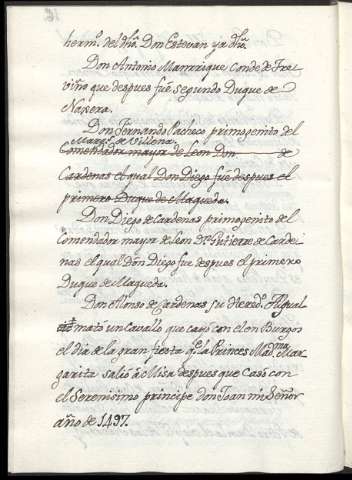 herm.º del dhõ. Don Estevan ya dhõ.
Don Antonio Manrrique Conde de Tre-
viño que despues fué segundo Duque de
Naxera.
Don Fernando Pacheco primogenito del
Marq.s de Villena.
Comendador mayor de Leon Don de
Cardenas el qual Don Diego fue despues el
primero Duque de Maqueda.
Don Diego de Cardenas primogenito del
Comendador mayor de Leon D.n Gutierre de Carde-
nas el qual don Diego fue despues el primero
Duque de Maqueda.
Don Alonso de Cardenas su hered.o Al qual
mató un Cavallo que cayó con el en Burgos
el dia de la gran fiesta q.e la Princes Mad.ma Mar-
garita salio á Misa despues que casó con
el Serenisimo principe don Joan mi Señor
año de 1497.